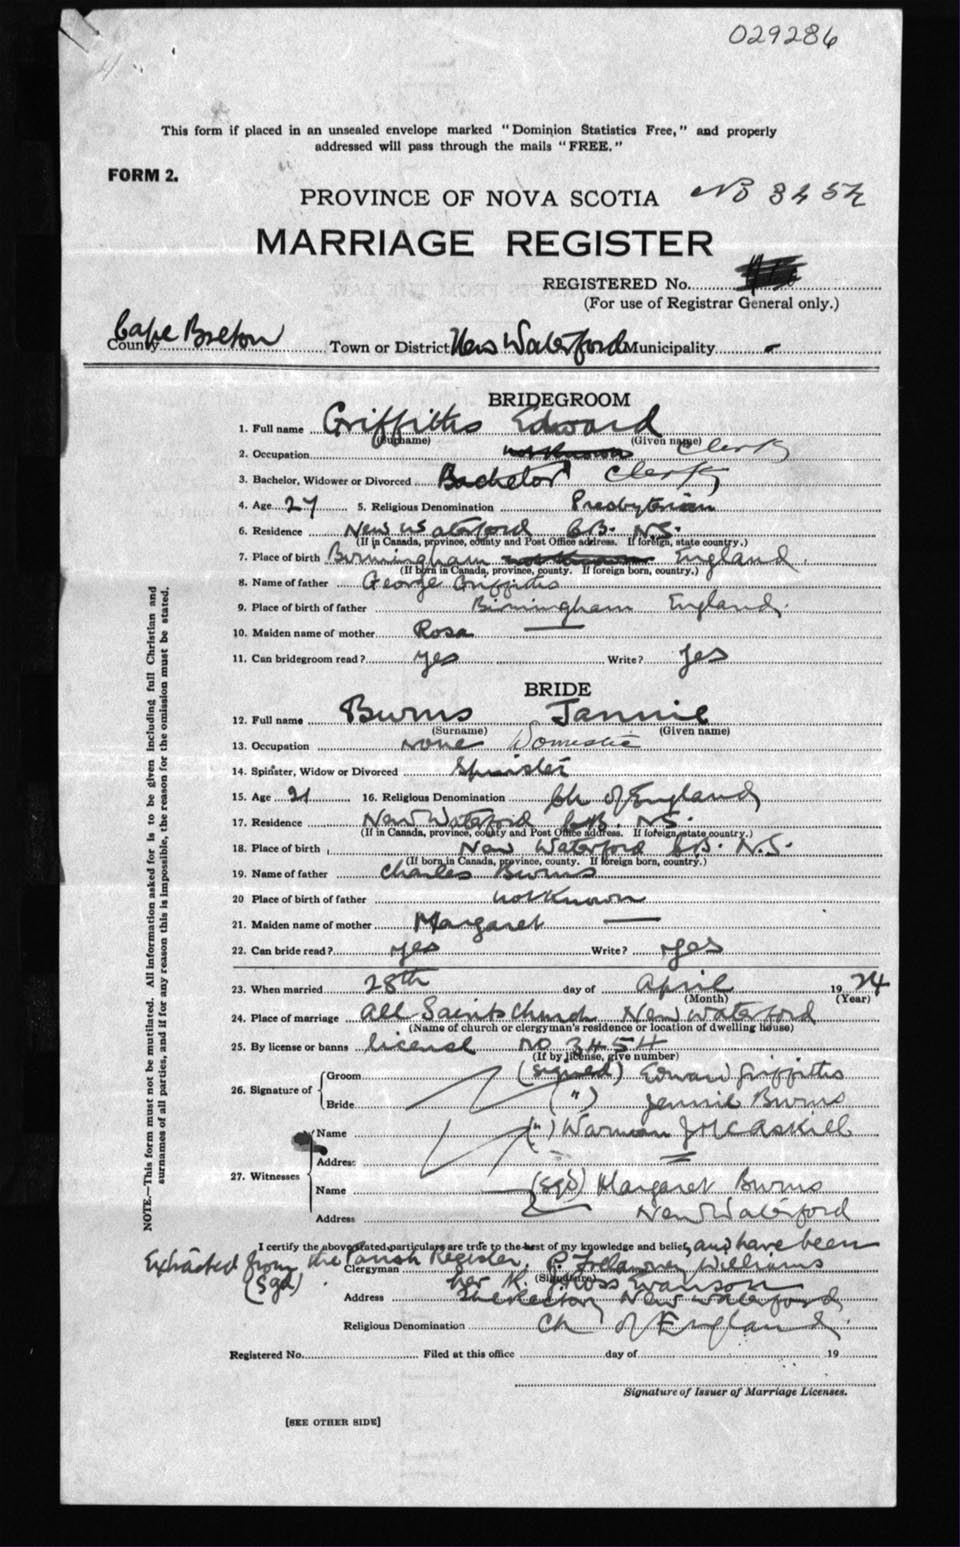 029286
This form if placed in an unsealed envelope marked "Dominion Statistics Free," and properly
addressed will pass through the mails "FREE."
FORM 2.
PROVINCE OF NOVA SCOTIA No 3454
MARRIAGE REGISTER
REGISTERED No.
(For use of Registrar General only.)
County Cape Breton Town or District New Waterford Municipality -
BRIDEGROOM
1. Full name Griffiths Edward
(Surname) (Given name)
2. Occupation not known Clerk
3. Bachelor, Widower or Divorced Bachelor Clerk
4. Age 27 5. Religious Denomination Presbyterian
6. Residence New Waterford C.B. N.S.
(If in Canada, province, county and Post Office address. If foreign, state country.)
7. Place of birth Birmingham not known England
(If born in Canada, province, county. If foreign born, country.)
8. Name of father George Griffiths
9. Place of birth of father Birmingham England
10. Maiden name of mother Rosa —
11. Can bridegroom read? yes Write? yes
BRIDE
12. Full name Burns Jannie
(Surname) (Given name)
13. Occupation none Domestic
14. Spinster, Widow or Divorced Spinster
15. Age 21 16. Religious Denomination Ch of England
17. Residence New Waterford C.B. N.S.
(If in Canada, province, county and Post Office address. If foreign, state country.)
18. Place of birth New Waterford C.B. N.S.
(If born in Canada, province, county. If foreign born, country.)
19. Name of father Charles Burns
20 Place of birth of father not known
21. Maiden name of mother Margaret —
22. Can bride read? yes Write? yes
23. When married 28th day of April 1924
(Month) (Year)
24. Place of marriage All Saints Church New Waterford
(Name of church or clergyman's residence or location of dwelling house)
25. By license or banns license no 3454
(If by license, give number)
26. Signature of Groom (signed) Edward Griffiths
Bride (") Jennie Burns
27. Witnesses Name (") J McAskill
Address
Name (sgd) Margaret Burns
Address New Waterford
I certify the above stated particulars are true to the best of my knowledge and belief, and have been
Extracted from the Parish Register.
Clergyman Williams
(Signature)
(Sgd)
Address The Rectory New Waterford
Religious Denomination Ch of England.
Registered No. Filed at this office day of 19
Signature of Issuer of Marriage Licenses.
[SEE OTHER SIDE]
NOTE.—This form must not be mutilated. All information asked for is to be given including full Christian and
surnames of all parties, and if for any reason this is impossible, the reason for the omission must be stated.